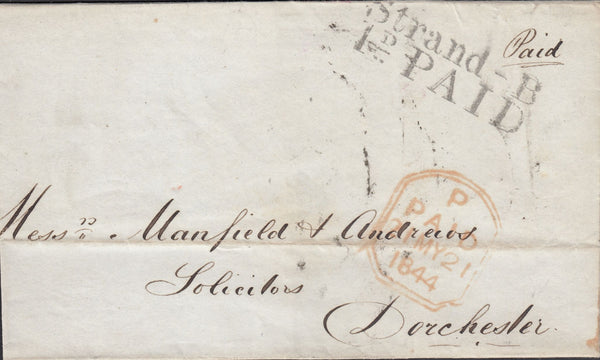 Strand-B
1D PAID
Paid
P
PAID
21 MY 21
1844
Messrs Manfield & Andrews
Solicitors
Dorchester.